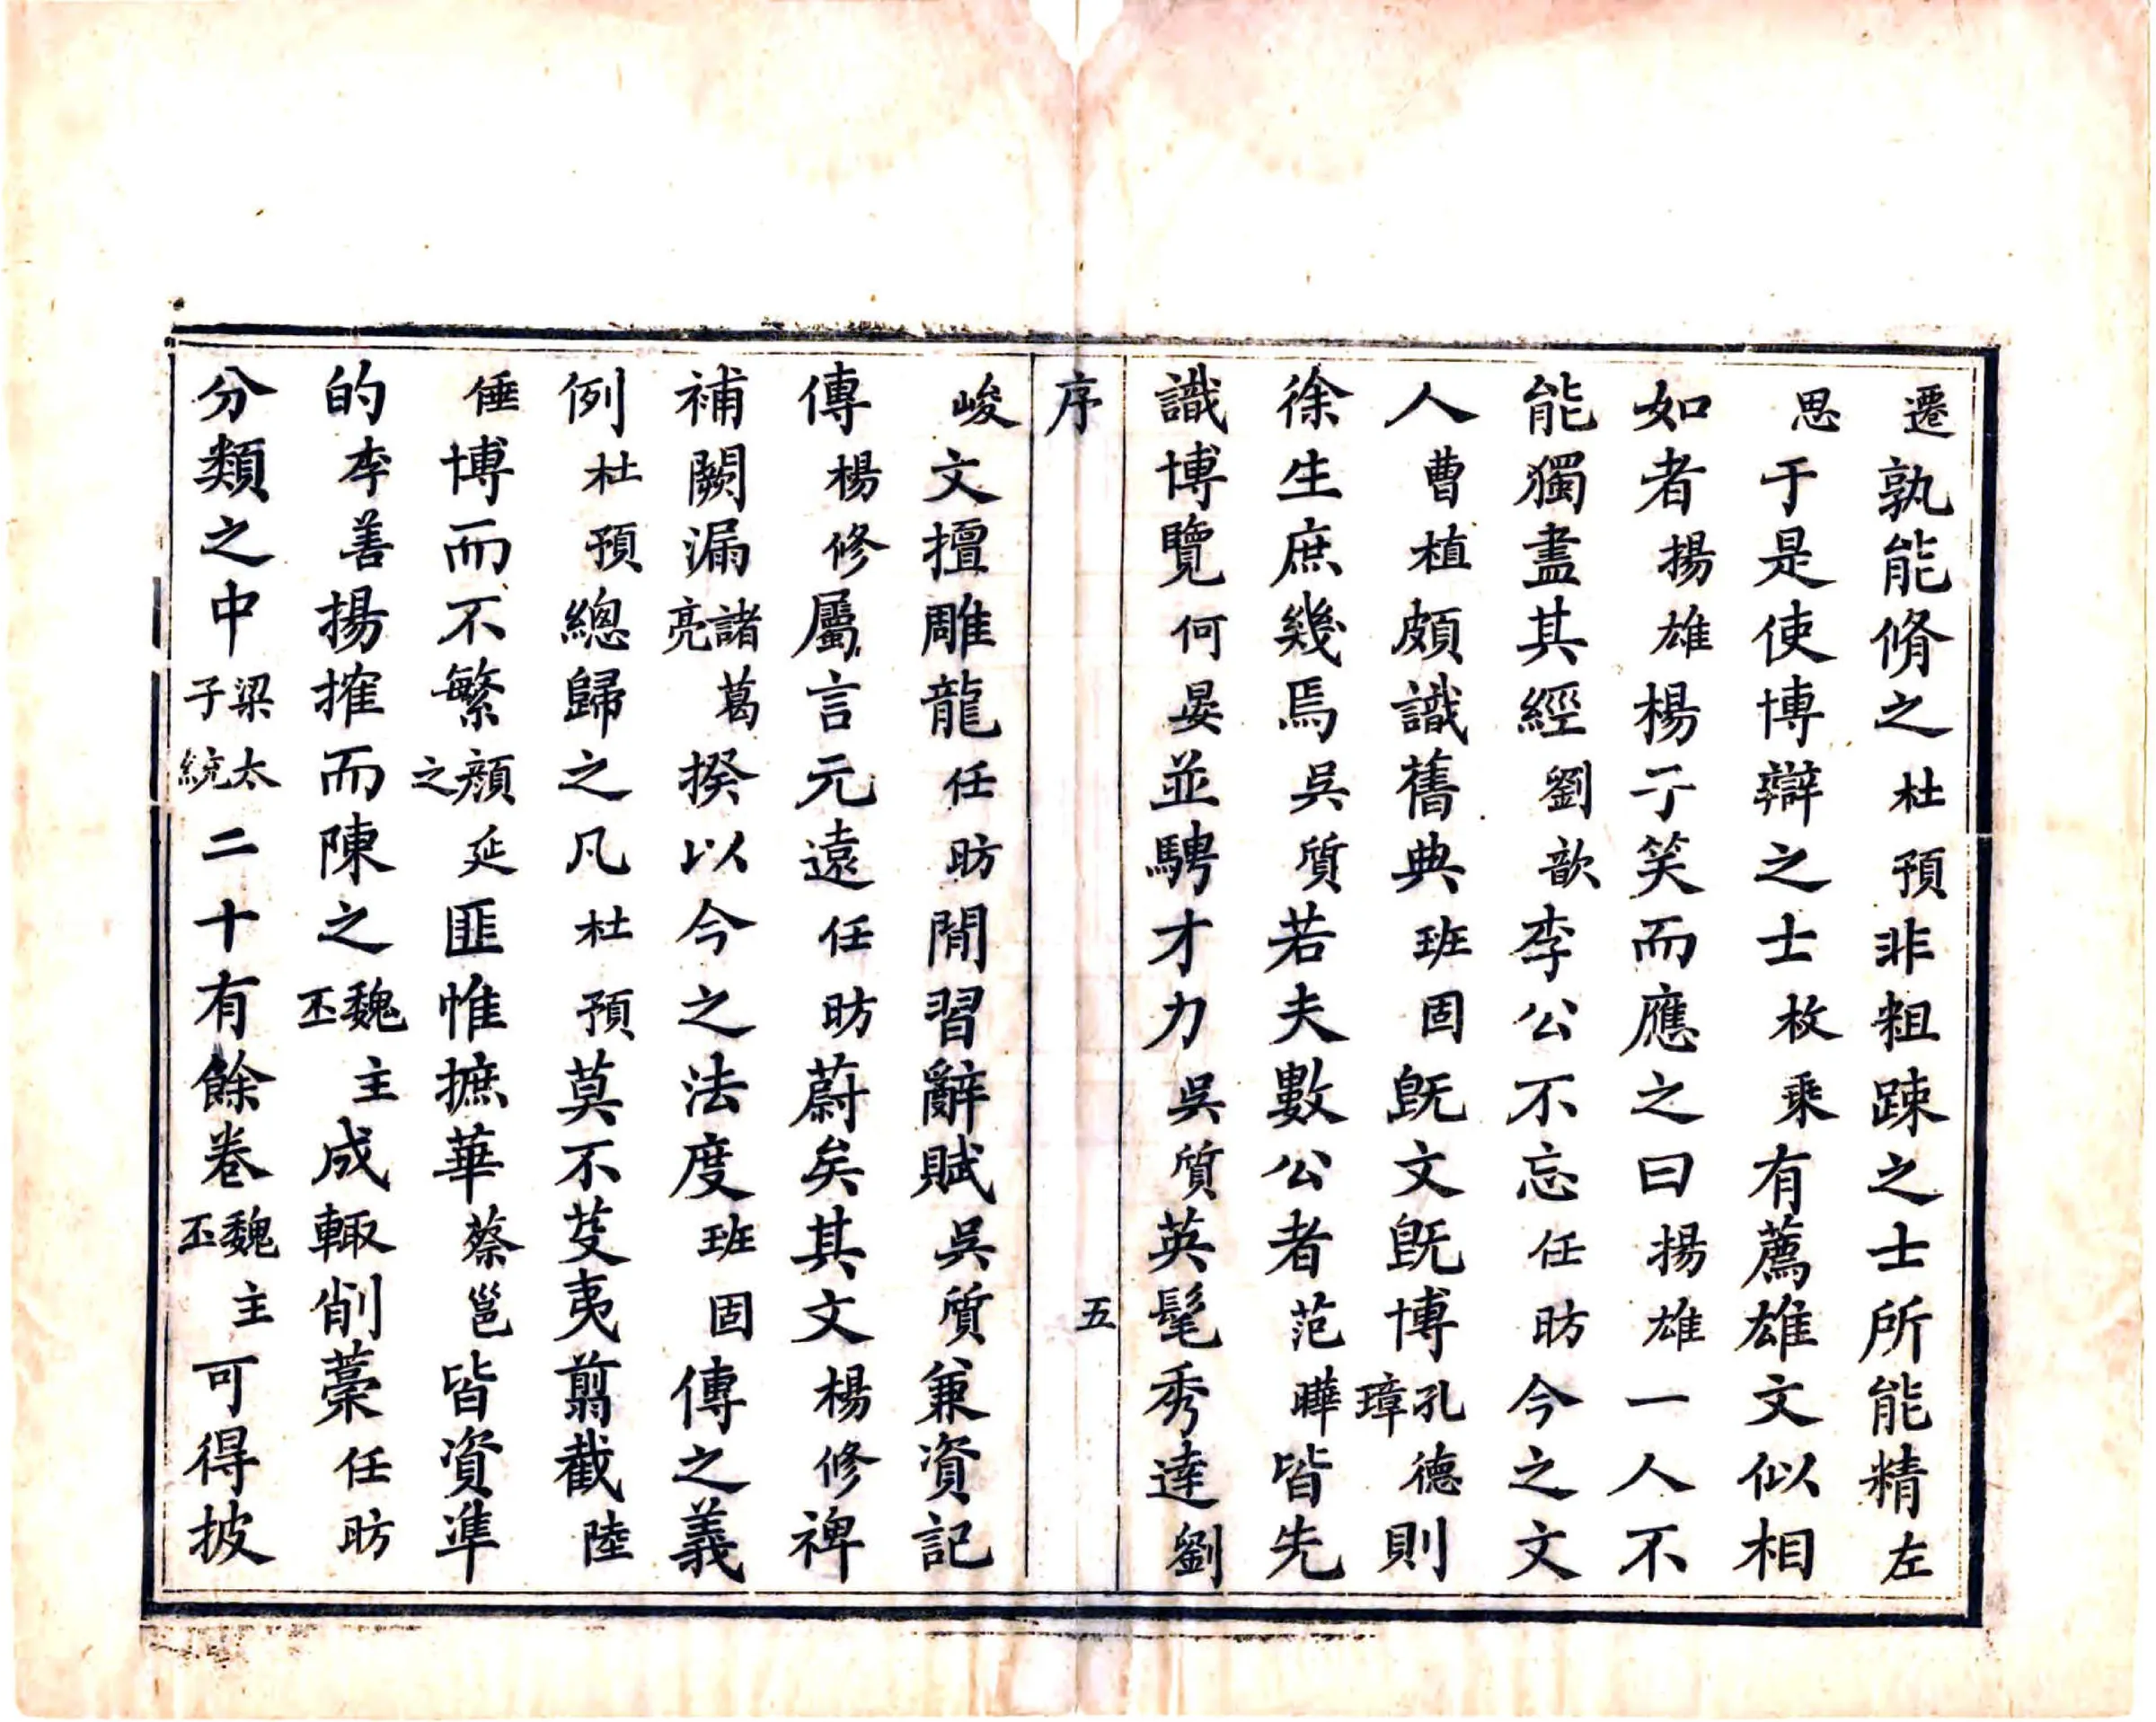 遷孰能脩之杜預非粗踈之士所能精左
思于是使博辯之士枚乘有薦雄文似相
如者揚雄楊子笑而應之曰揚雄一人不
能獨盡其經劉歆李公不忘任昉今之文
人曹植頗識舊典班固既文既博孔德璋則
徐生庶幾焉吳質若夫數公者范曄皆先
識博覽何晏並騁才力吳質英髦秀達劉
序
五
峻文擅雕龍任昉閒習辭賦吳質兼資記
傳楊修屬言元遠任昉蔚矣其文楊修裨
補闕漏諸葛亮揆以今之法度班固傳之義
例杜預總歸之凡杜預莫不芟夷翦截陸
倕博而不繁顏延之匪惟摭華蔡邕皆資準
的李善揚搉而陳之魏主丕成輙削藁任昉
分類之中梁太子統二十有餘卷魏主丕可得披